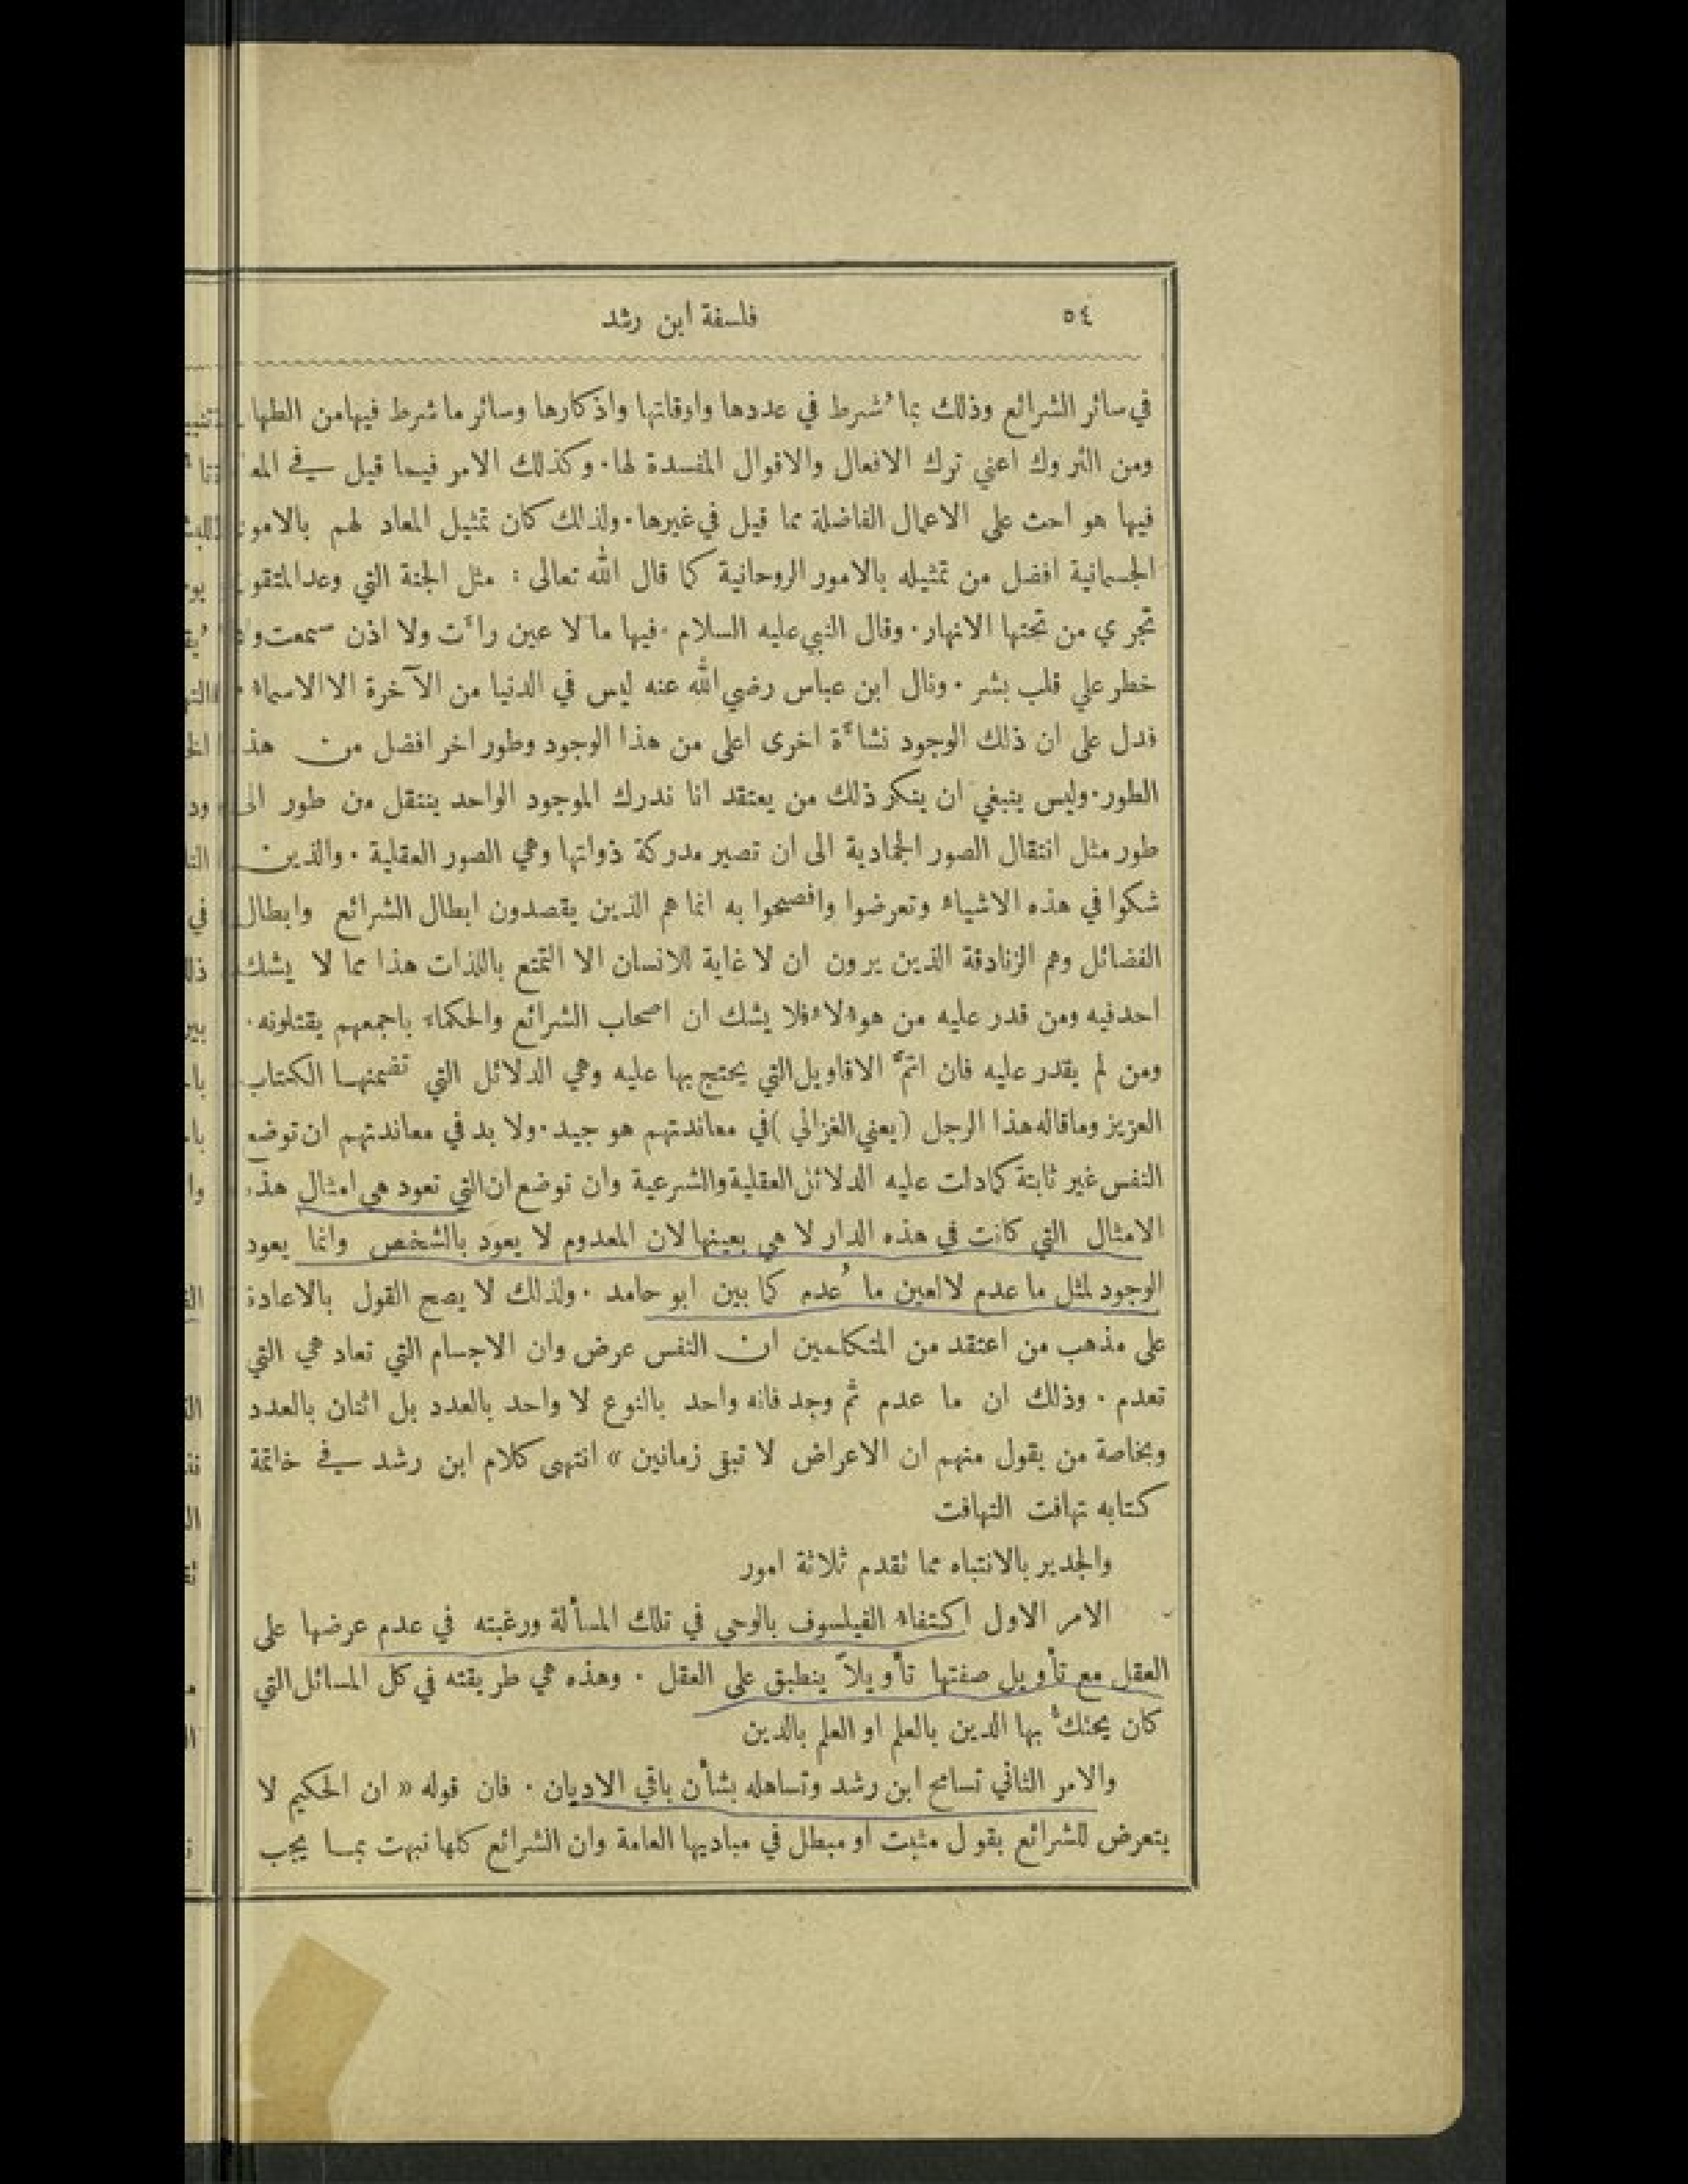 ٥٤
فلسفة ابن رشد
في سائر الشرائع وذلك بما ُشرط في عددها واوقاتها واذكارها وسائر ما شرط فيهامن الطها
ومن التروك اعني ترك الافعال والاقوال المفسدة لها. وكذلك الامر فيما قيل في المعا
فيها هو احث على الاعمال الفاضلة مما قيل في غيرها. ولذلك كان تمثيل المعاد لهم بالامو
الجسمانية افضل من تمثيله بالامور الروحانية كما قال الله تعالى : مثل الجنة التي وعدالمتقو
تجري من تحتها الانهار. وقال النبي عليه السلام . فيها ما لا عين رأت ولا اذن سمعت ولا
خطر علي قلب بشر . وقال ابن عباس رضي الله عنه ليس في الدنيا من الآخرة الا الاسماء .
فدل على ان ذلك الوجود نشأة اخرى اعلى من هذا الوجود وطور اخر افضل من هذ
الطور. وليس ينبغي ان ينكر ذلك من يعتقد انا ندرك الموجود الواحد ينتقل من طور الى
طور مثل انتقال الصور الجمادية الى ان تصير مدركة ذواتها وهي الصور العقلية . والذين
شكوا في هذه الاشياء وتعرضوا وافصحوا به انما هم الذين يقصدون ابطال الشرائع وابطال
الفضائل وهم الزنادقة الذين يرون ان لا غاية للانسان الا التمتع باللذات هذا مما لا يشك
احدفيه ومن قدر عليه من هوءلاء فلا يشك ان اصحاب الشرائع والحكماء باجمعهم يقتلونه.
ومن لم يقدر عليه فان اتمَّ الاقاويل التي يحتج بها عليه وهي الدلائل التي تضمنها الكتاب
العزيز وماقاله هذا الرجل (يعني الغزالي) في معاندتهم هو جيد. ولا بد في معاندتهم ان توضع
النفس غير ثابتة كمادلت عليه الدلائل العقلية والشرعية وان توضع ان التي تعود هي امثال هذه
الامثال التي كانت في هذه الدار لا هي بعينها لان المعدوم لا يعود بالشخص وانما يعود
الوجود لمثل ما عدم لا لعين ما ُعدم كما بين ابو حامد . ولذلك لا يصح القول بالاعادة
على مذهب من اعتقد من المتكلمين ان النفس عرض وان الاجسام التي تعاد هي التي
تعدم . وذلك ان ما عدم ثم وجد فانه واحد بالنوع لا واحد بالعدد بل اثنان بالعدد
وبخاصة من يقول منهم ان الاعراض لا تبقى زمانين » انتهى كلام ابن رشد في خاتمة
كتابه تهافت التهافت
والجدير بالانتباه مما تقدم ثلاثة امور
الامر الاول اكتفاء الفيلسوف بالوحي في تلك المسألة ورغبته في عدم عرضها على
العقل مع تأويل صفتها تأويلاً ينطبق على العقل . وهذه هي طريقته في كل المسائل التي
كان يحتكُّ بها الدين بالعلم او العلم بالدين
والامر الثاني تسامح ابن رشد وتساهله بشأن باقي الاديان . فان قوله « ان الحكيم لا
يتعرض للشرائع بقول مثبت او مبطل في مباديها العامة وان الشرائع كلها نبهت بما يجب